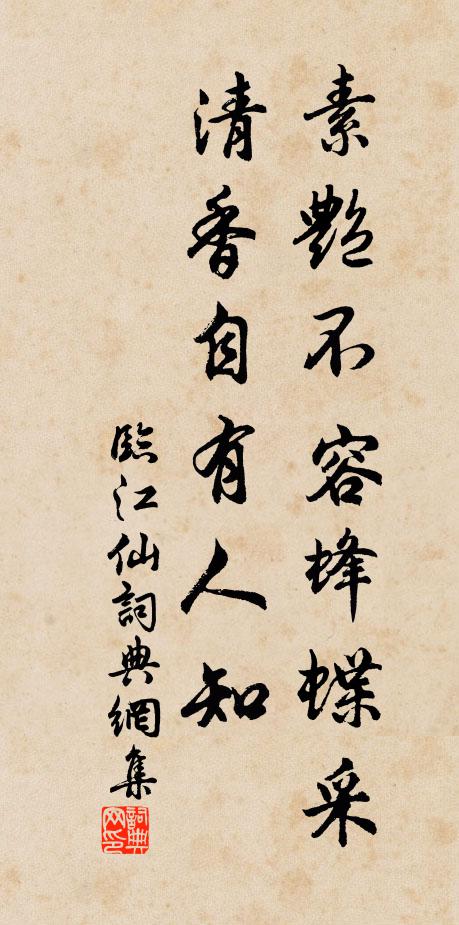 素艷不容蜂蝶采
清香自有人知
臨江仙詞典網集
詞典網印